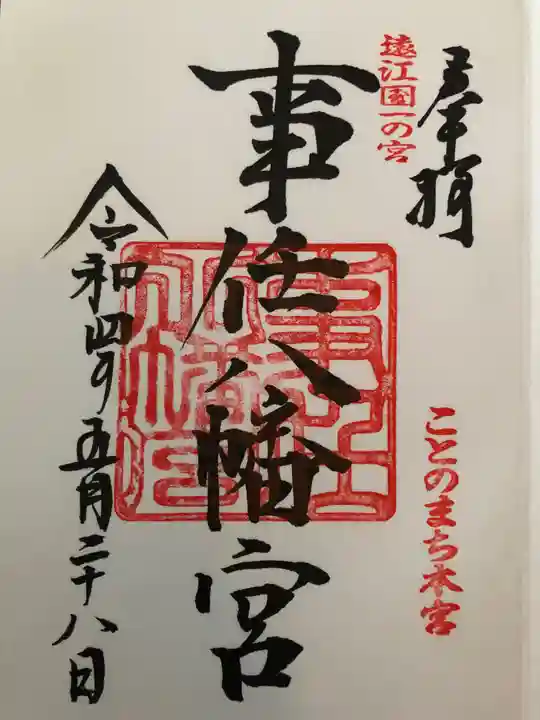 奉拝
遠江国一の宮
ことのまち本宮
事任八幡宮
令和四年五月二十八日